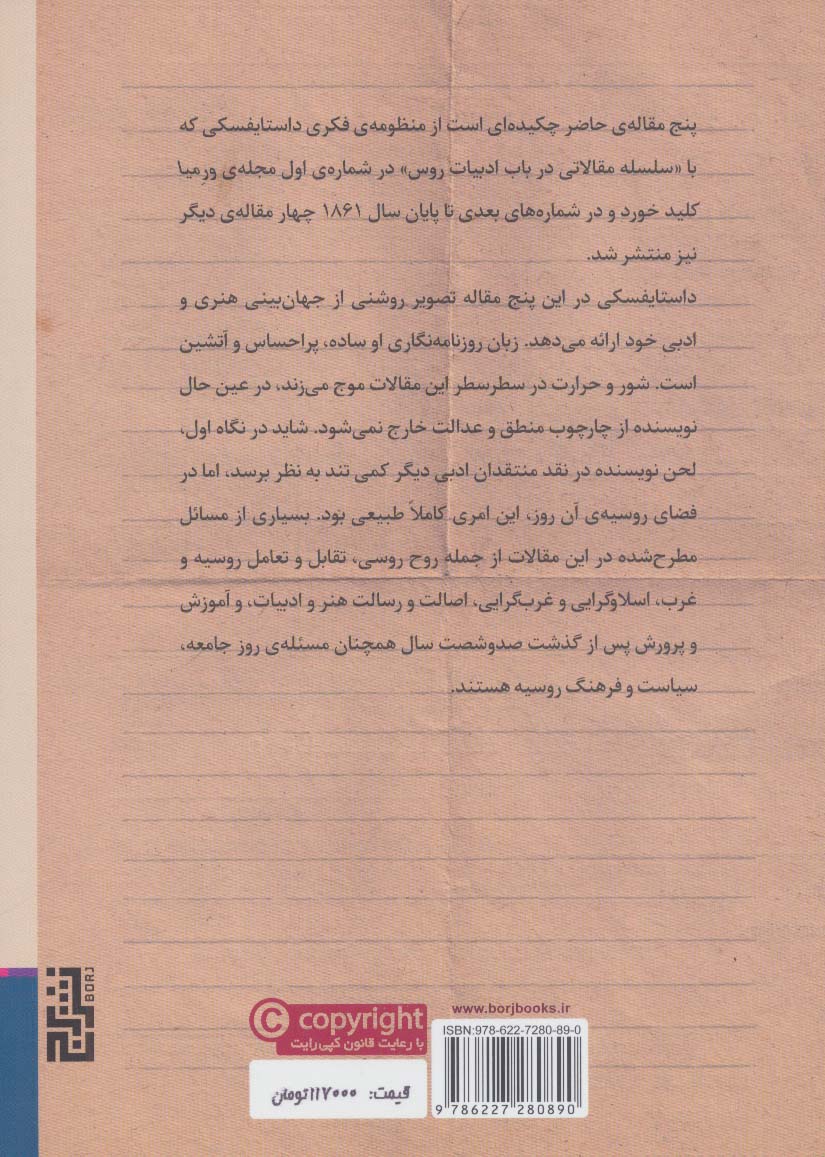 پنج مقاله‌ی حاضر چکیده‌ای است از منظومه‌ی فکری داستایفسکی که
با «سلسله مقالاتی در باب ادبیات روس» در شماره‌ی اول مجله‌ی ورِمیا
کلید خورد و در شماره‌های بعدی تا پایان سال ۱۸۶۱ چهار مقاله‌ی دیگر
نیز منتشر شد.
داستایفسکی در این پنج مقاله تصویر روشنی از جهان‌بینی هنری و
ادبی خود ارائه می‌دهد. زبان روزنامه‌نگاری او ساده، پراحساس و آتشین
است. شور و حرارت در سطرسطر این مقالات موج می‌زند، در عین حال
نویسنده از چارچوب منطق و عدالت خارج نمی‌شود. شاید در نگاه اول،
لحن نویسنده در نقد منتقدان ادبی دیگر کمی تند به نظر برسد، اما در
فضای روسیه‌ی آن روز، این امری کاملاً طبیعی بود. بسیاری از مسائل
مطرح‌شده در این مقالات از جمله روح روسی، تقابل و تعامل روسیه و
غرب، اسلاوگرایی و غرب‌گرایی، اصالت و رسالت هنر و ادبیات، و آموزش
و پرورش پس از گذشت صدوشصت سال همچنان مسئله‌ی روز جامعه،
سیاست و فرهنگ روسیه هستند.
برج
BORJ
© copyright
با رعایت قانون کپی‌رایت
قیمت: ۱۱۷۰۰۰تومان
www.borjbooks.ir
ISBN:978-622-7280-89-0
9 786227 280890